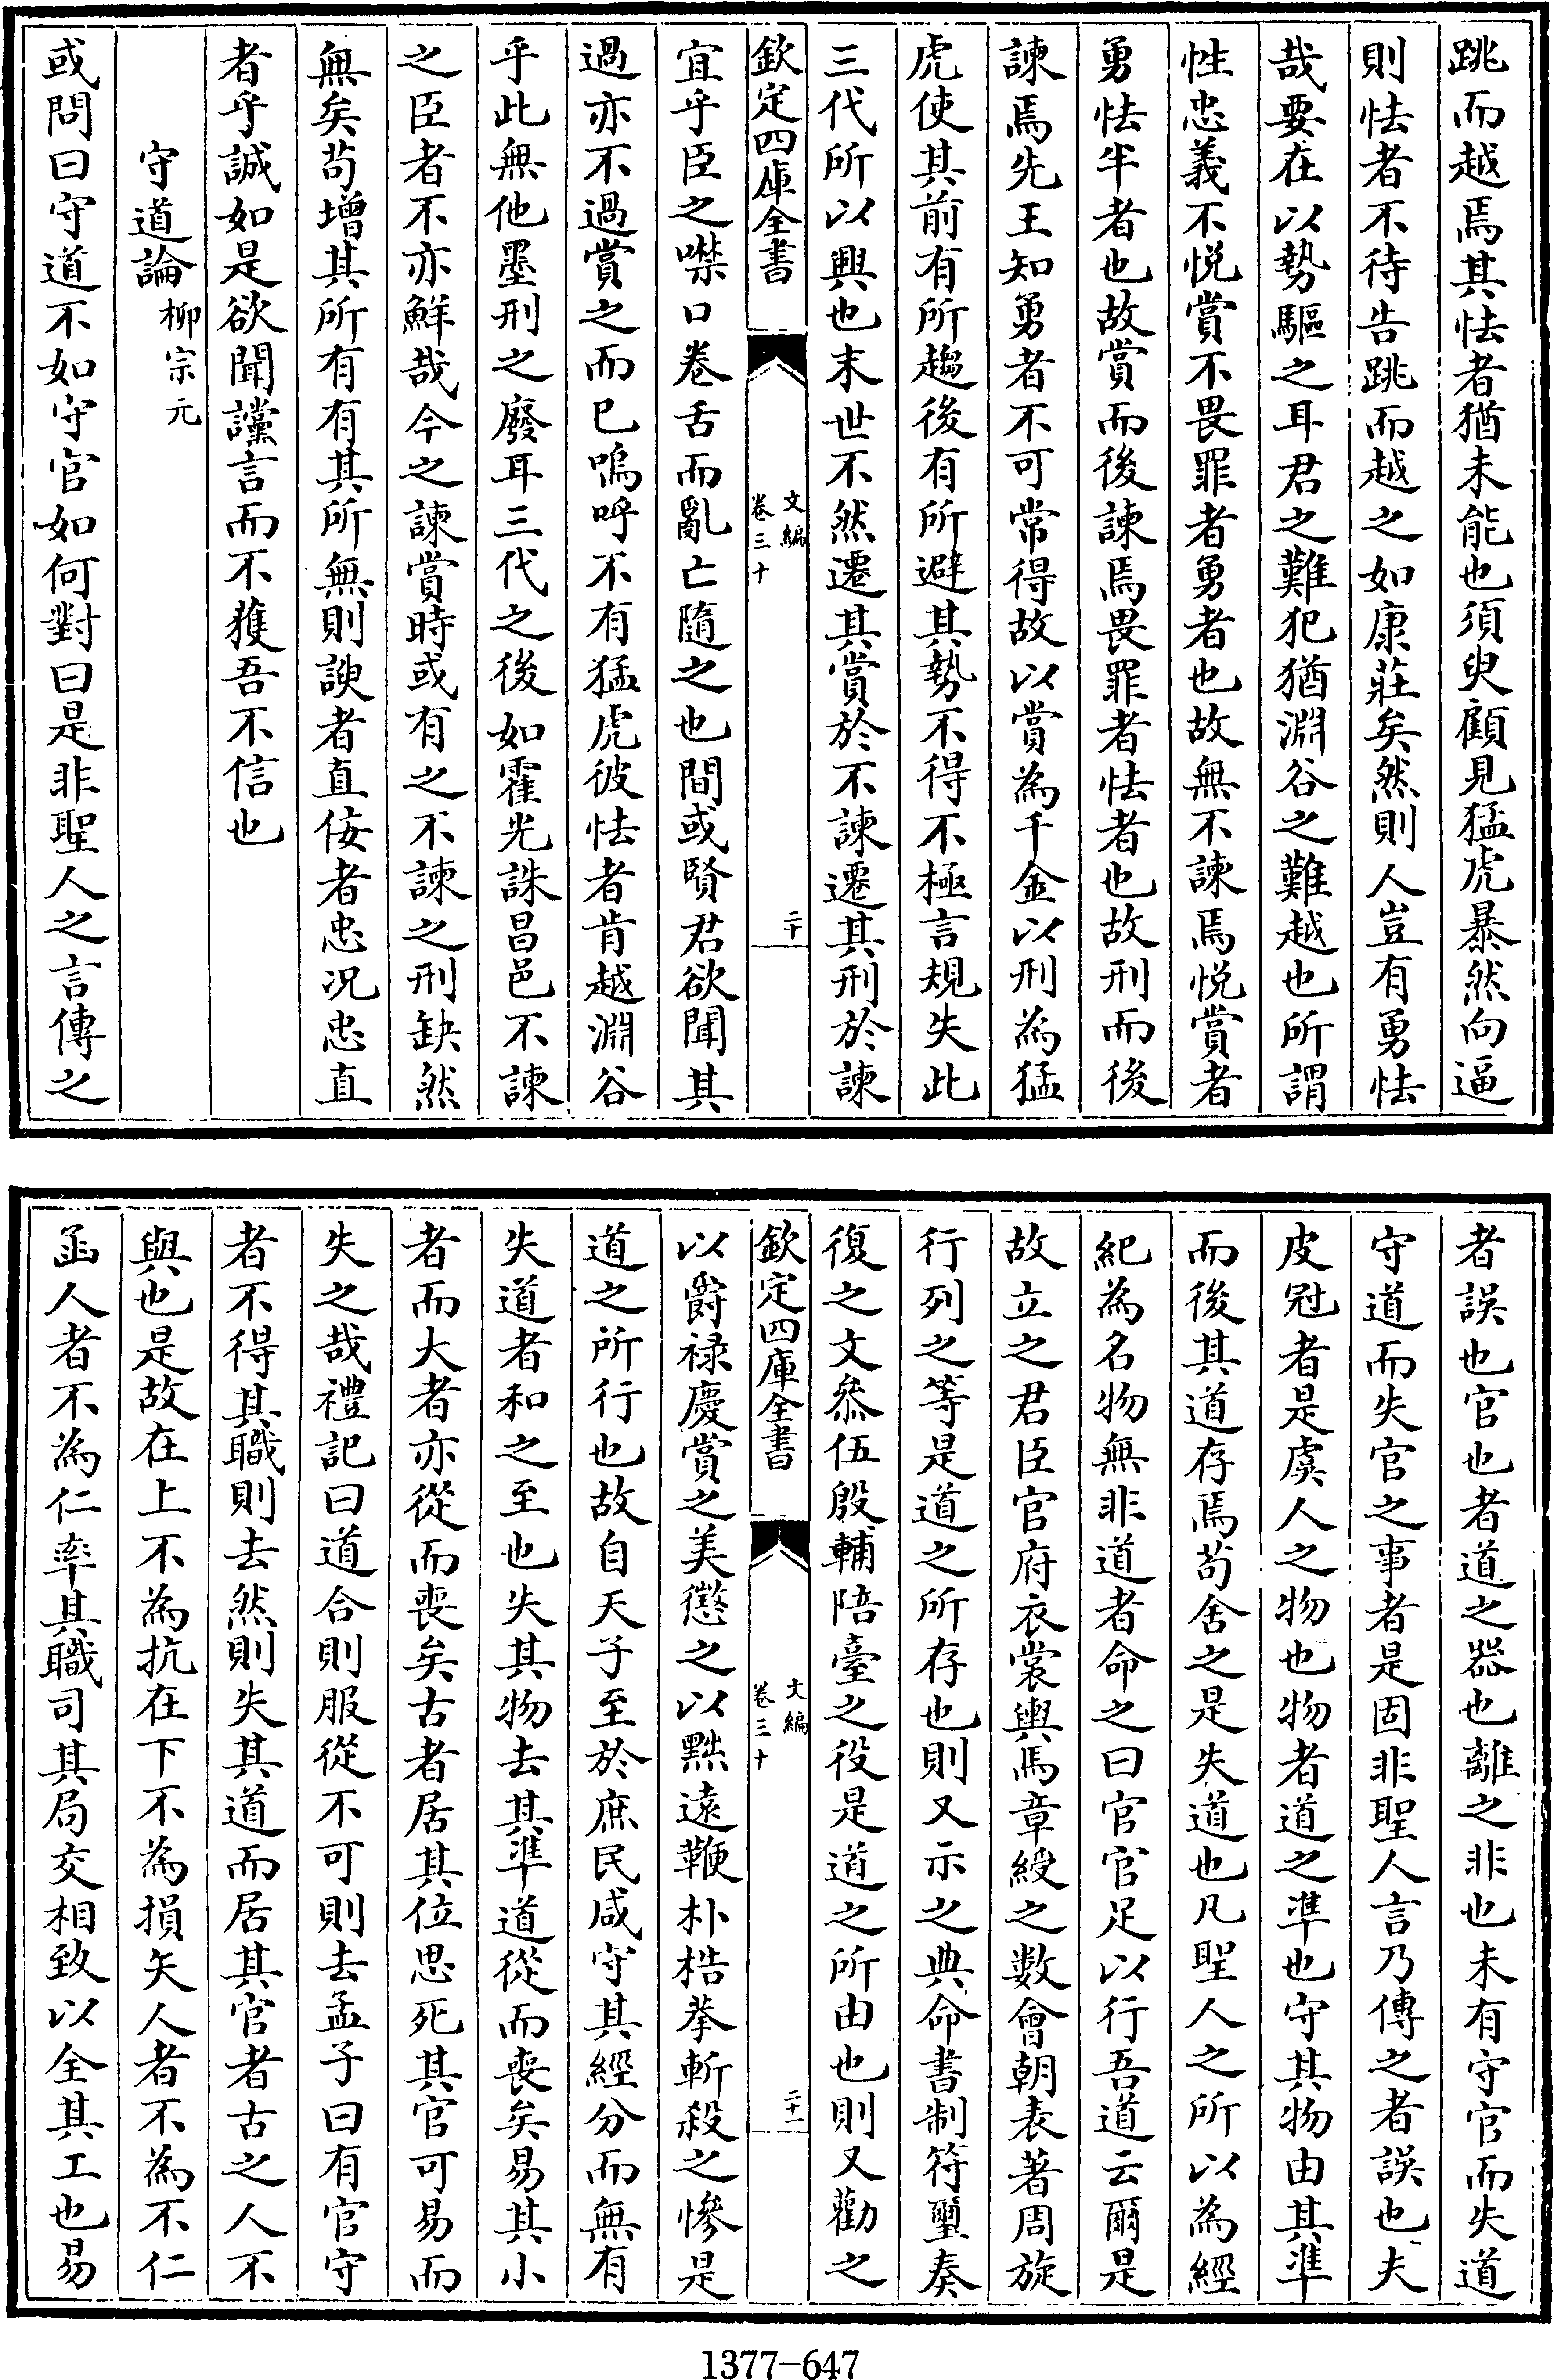 跳而越焉其怯者猶未能也須臾顧見猛虎暴然向逼
則怯者不待告跳而越之如康莊矣然則人豈有勇怯
哉要在以勢驅之耳君之難犯猶淵谷之難越也所謂
性忠義不悦賞不畏罪者勇者也故無不諫焉悦賞者
勇怯半者也故賞而後諫焉畏罪者怯者也故刑而後
諫焉先王知勇者不可常得故以賞為千金以刑為猛
虎使其前有所趨後有所避其勢不得不極言規失此
三代所以興也末世不然遷其賞於不諫遷其刑於諫
欽定四庫全書
文編
卷三十
二十
宜乎臣之噤口卷舌而亂亡隨之也間或賢君欲聞其
過亦不過賞之而已嗚呼不有猛虎彼怯者肯越淵谷
乎此無他墨刑之廢耳三代之後如霍光誅昌邑不諫
之臣者不亦鮮哉今之諫賞時或有之不諫之刑缺然
無矣苟增其所有有其所無則諛者直佞者忠况忠直
者乎誠如是欲聞讜言而不獲吾不信也
守道論 柳宗元
或問曰守道不如守官如何對曰是非聖人之言傳之
者誤也官也者道之器也離之非也未有守官而失道
守道而失官之事者是固非聖人言乃傳之者誤也夫
皮冠者是虞人之物也物者道之準也守其物由其準
而後其道存焉苟舍之是失道也凡聖人之所以為經
紀為名物無非道者命之曰官官足以行吾道云爾是
故立之君臣官府衣裳輿馬章綬之數會朝表著周旋
行列之等是道之所存也則又示之典命書制符璽奏
復之文叅伍殷輔陪臺之役是道之所由也則又勸之
欽定四庫全書
文編
卷三十
二十一
以爵禄慶賞之美懲之以黜遠鞭朴梏拲斬殺之慘是
道之所行也故自天子至於庶民咸守其經分而無有
失道者和之至也失其物去其準道從而喪矣易其小
者而大者亦從而喪矣古者居其位思死其官可易而
失之哉禮記曰道合則服從不可則去孟子曰有官守
者不得其職則去然則失其道而居其官者古之人不
與也是故在上不為抗在下不為損矢人者不為不仁
函人者不為仁率其職司其局交相致以全其工也易
1377-647